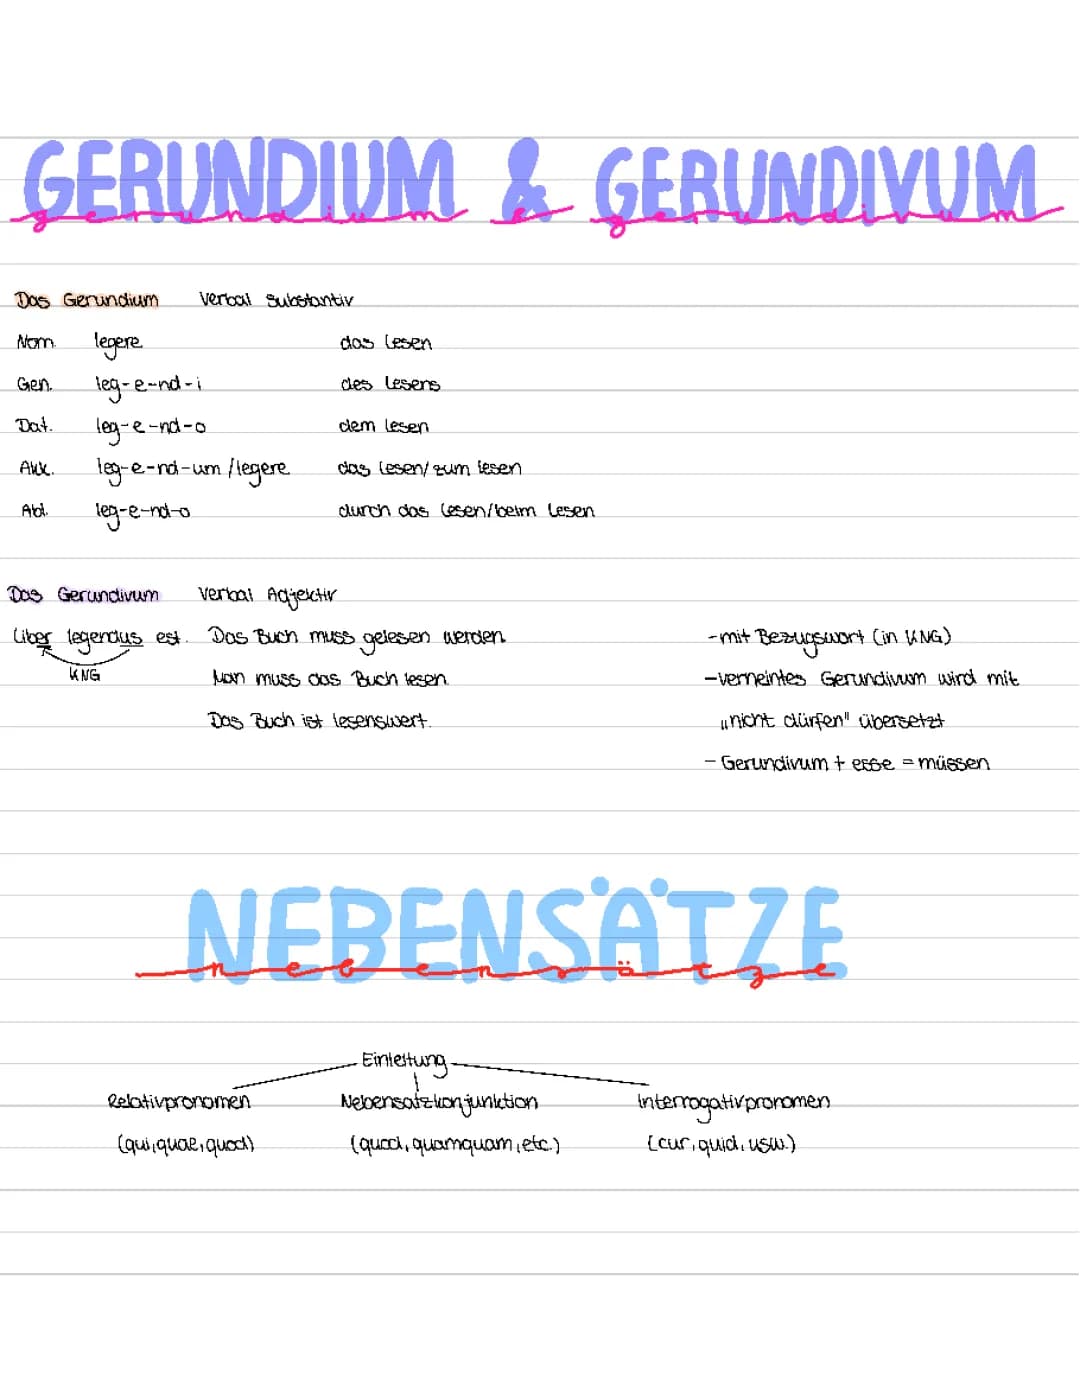 GERUNDIUM & GERUNDIVUM
gerundium & gerundivum
Das Gerundium Verbal Substantiv
Nom. legere das Lesen
Gen. leg-e-nd-i des Lesens
Dat. leg-e-nd-o dem Lesen
Akk. leg-e-nd-um/legere das Lesen/zum Lesen
Abl. leg-e-nd-o durch das Lesen/beim Lesen
Das Gerundivum Verbal Adjektiv
Liber legendus est. Das Buch muss gelesen werden. -mit Bezugswort (in KNG)
KNG Man muss das Buch lesen. -verneintes Gerundivum wird mit
Das Buch ist lesenswert. „nicht dürfen" übersetzt
- Gerundivum + esse = müssen
NEBENSÄTZE
nebensätze
Einleitung
Relativpronomen Nebensatzkonjunktion Interrogativpronomen
(qui, quae, quod) (quod, quamquam, etc.) (cur, quid, usw.)